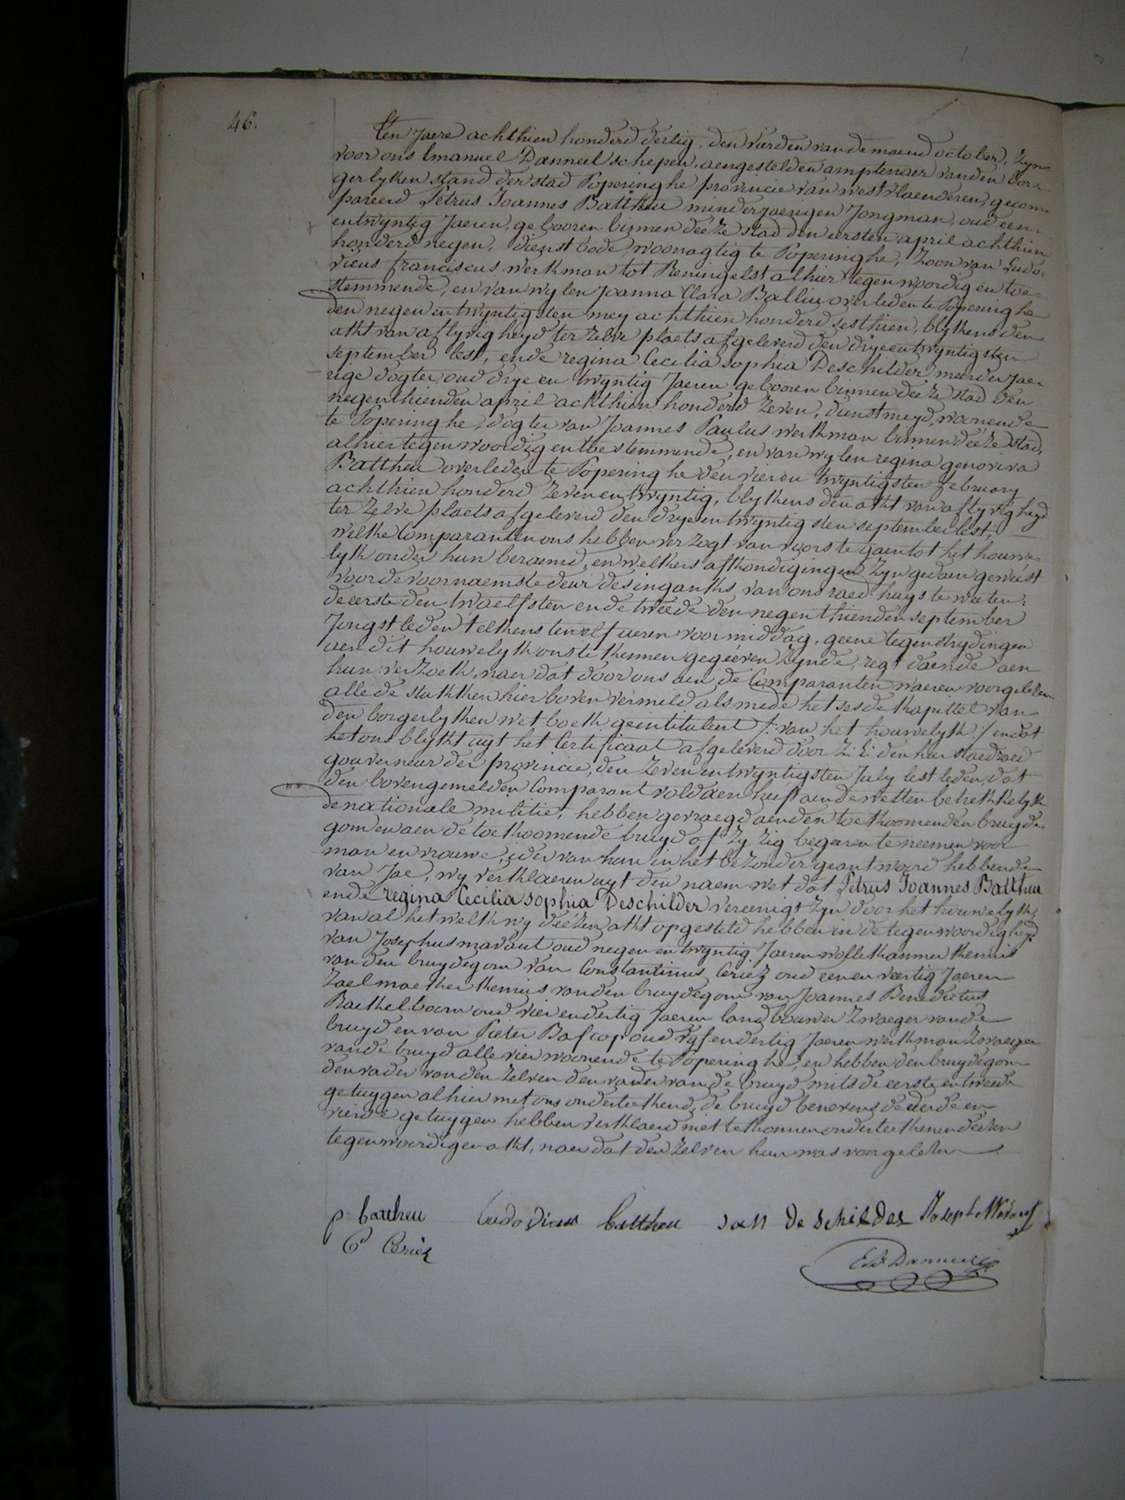 46.
Ten Jaere achthien honderd dertig, den vierden van de maend october, zyn
voor ons Emanuel Danneel schepen, aengestelden amptenaer van den bor-
gerlyken stand der stad Poperinghe provincie van westvlaenderen, gecom-
pareerd Petrus Joannes Battheu minderjaerigen Jongman, oud een-
entwyntig Jaeren, gebooren binnen deéze stad den eersten april achthien
honderd negen, dienstbode woonagtig te Poperinghe, zoon van Ludo-
vicus franciscus werkman tot Reningelst alhier tegenwoordig en toe-
stemmende, en van wylen Joanna Clara Ballieu overleden te Poperinghe
den negen en twyntigsten mey achthien honderd sesthien, blykens den
akt van aflyvigheyd ter zelve plaets afgeleverd den dryeentwyntigsten
september lest, ende regina Cecilia sophia Deschilder meerderjaer-
rige dogter, oud drye en twyntig Jaeren gebooren binnen deéze stad den
negenthienden april achthien honderd zeven, dienstmeyd, woonende
te Poperinghe, dogter van Joannes Paulus werkman binnen deéze stad,
alhier tegenwoordig en toestemmende, en van wylen regina genoviva
Battheu overleden te Poperinghe den vier en twyntigsten february
achthien honderd zevenentwyntig, blykens den akt van aflyvigheyd
ter zelve plaets afgeleverd den dryeentwyntigsten september lest,
welke Comparanten ons hebben verzogt van voors te gaen tot het houwe-
lyk onder hun beraemd, en welkers afkondigingen zyn gedaen geweést
voor de voornaemste deur des ingankhs, van ons raed huys te weeten:
de eerste den twaelfsten en de tweede den negenthienden september
Jongstleden telkens ten elf ueren voormiddag, geene tegenstrydingen
aen dit houwelyk ons te kennen gegeéven zynde, regt doende aen
hun verzoek, naer dat door ons aen de Comparanten waeren voorgelesen
alle de stukken hier boven vermeld als mede het sesde kapittel van
den borgerlyken wetboek geintituleert /: van het houwelyk :/ en dat
het ons blykt uyt het Certificaat afgeleverd door Z: E: den heer staedraed
gouverneur der provincie, den zeven en twyntigsten July lestleden, dat
den bovengemelden Comparant voldaen heeft aen de wetten betrekkelyk
de nationale militie, hebben gevraegd aen den toekoomenden bruyde-
gom en aen de toekoomende bruyd of zy zig begeeren te neemen voor
man en vrouwe, ider van hun in het bezonder geantwoord hebbende
van Jae, wy verklaeren uyt den naem wet dat Petrus Joannes Battheu
ende regina Cecilia sophia Deschilder vereenigt zyn door het houwelyk,
van al het welk wy dieézen akt opgesteld hebben in de tegenwoordigheyd
van Josephus oud negen en twyntig Jaeren kennis
van den bruydegom van Constantinus Ceriez oud een en veertig Jaeren
Zaelmaeker kennis van den bruydegom van Joannes Benedictus
Baekelboom oud vier en dertig Jaeren landbouwer zwaeger van de
bruyd en van Pieter Bascop oud vyfendertig Jaeren werkman zwaeger
van de bruyd alle vier woonende te Poperinghe, en hebben den bruydegom
den vader van den zelven den vader van de bruyd mits de eerste en tweede
getuygen alhier met ons onderteekend, de bruyd benevens de derde en
vierde getuygen hebben verklaerd niet te konnen onderteekenen deézen
tegenwoordigen akt, naer dat den zelven hun was voorgelesen
p. battheu Ludovicus battheu Jan de schilder Joseph
C Ceriez
Em Danneel